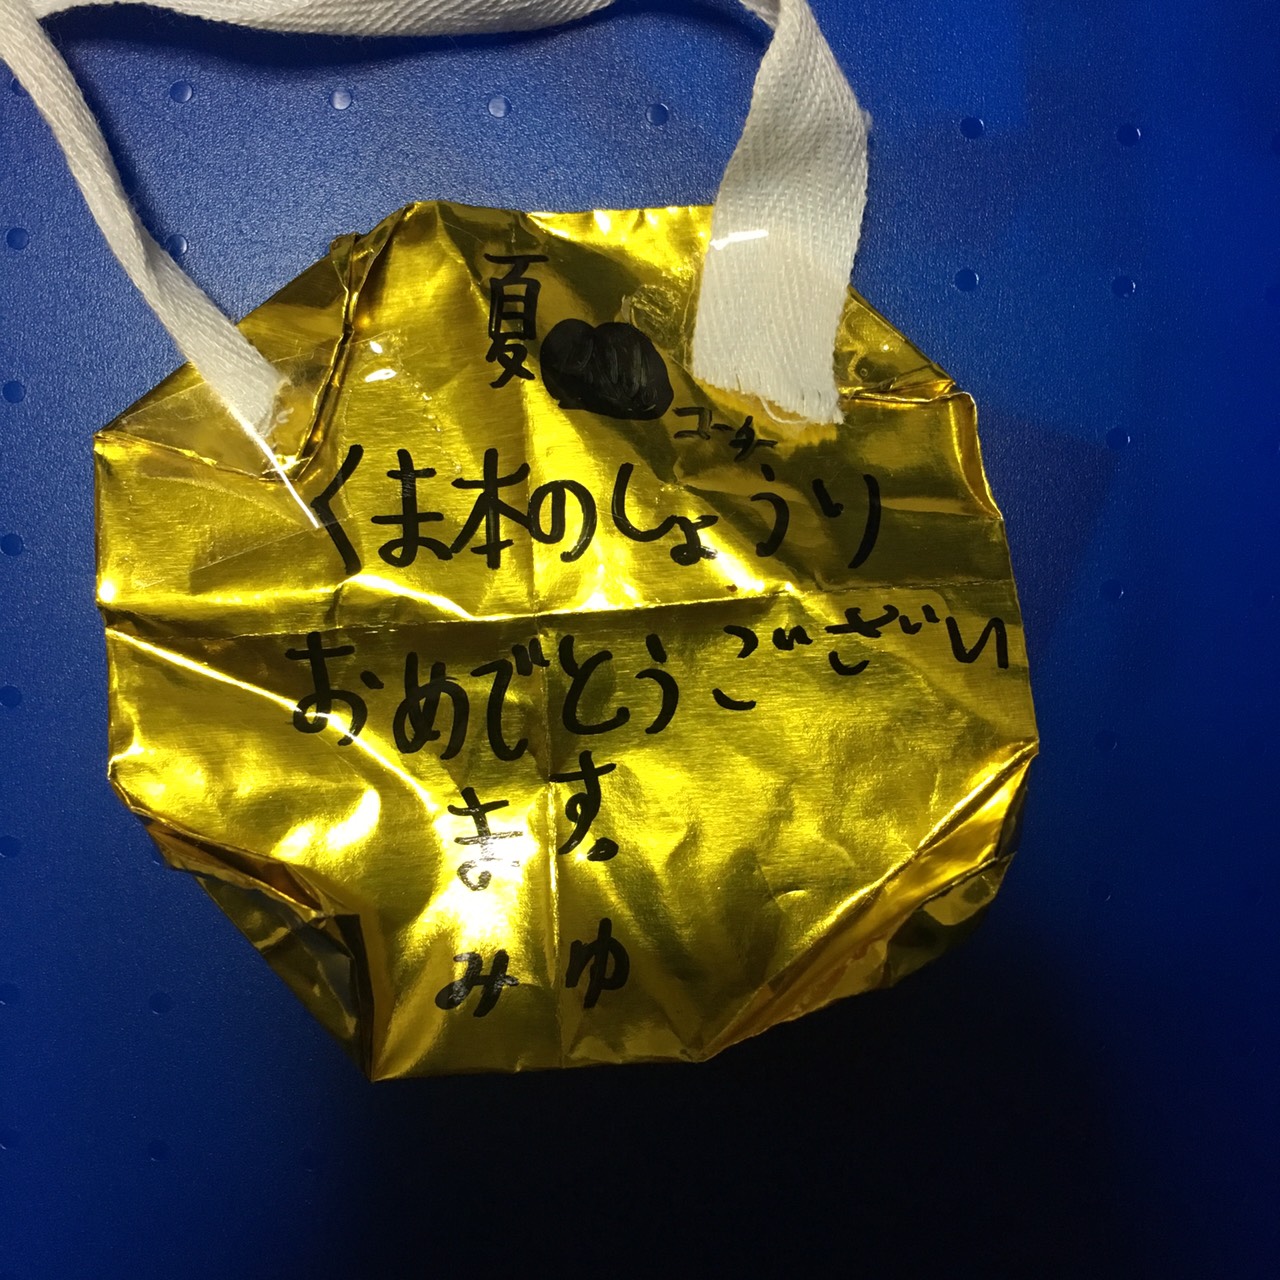 夏
コーチー
くま本のしょうり
おめでとうござい
ます。
みゆ